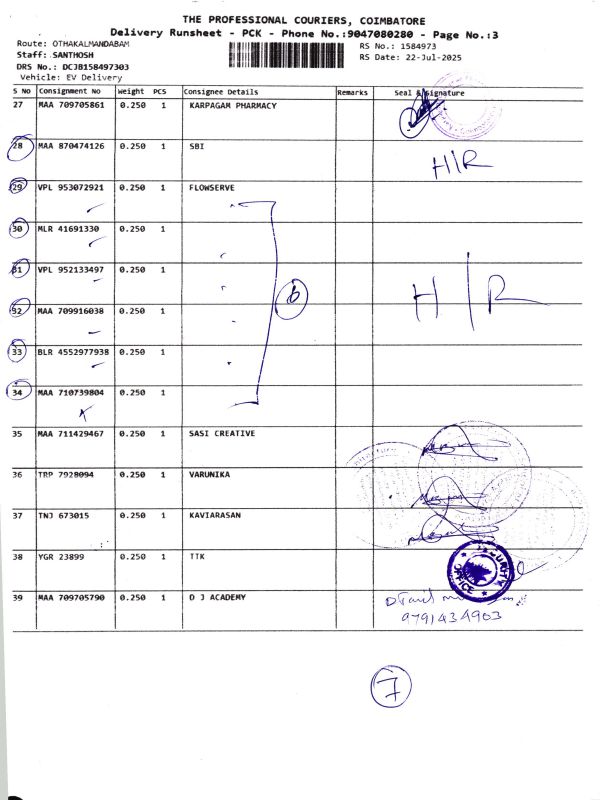 THE PROFESSIONAL COURIERS, COIMBATORE
Delivery Runsheet - PCK - Phone No.:9047080280 - Page No.:3
Route: OTHAKALMANDABAM
RS No.: 1584973
Staff: SANTHOSH
RS Date: 22-Jul-2025
DRS No.: DCJB158497303
Vehicle: EV Delivery
S No Consignment No Weight PCS Consignee Details Remarks Seal & Signature
27 MAA 709705861 0.250 1 KARPAGAM PHARMACY
28 MAA 870474126 0.250 1 SBI H/R
29 VPL 953072921 0.250 1 FLOWSERVE
30 MLR 41691330 0.250 1
31 VPL 952133497 0.250 1
6 H/R
32 MAA 709916038 0.250 1
33 BLR 4552977938 0.250 1
34 MAA 710739804 0.250 1
35 MAA 711429467 0.250 1 SASI CREATIVE
36 TRP 7928094 0.250 1 VARUNIKA
37 TNJ 673015 0.250 1 KAVIARASAN
38 YGR 23899 0.250 1 TTK
SECURITY OFFICE
39 MAA 709705790 0.250 1 D J ACADEMY
9791434903
7